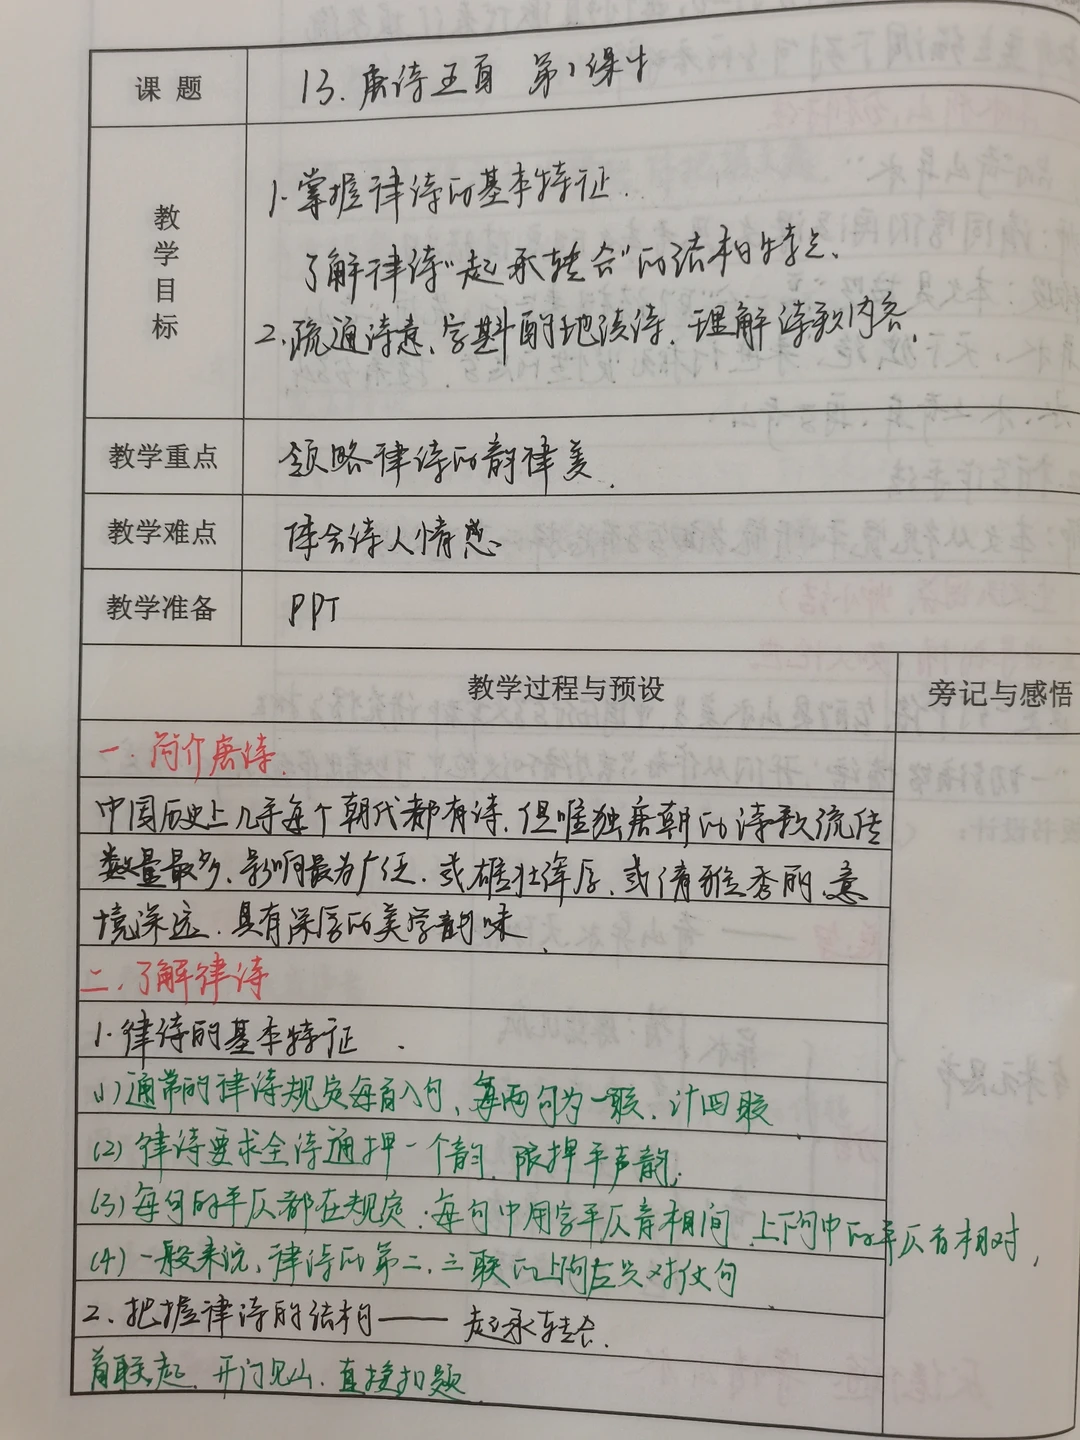 课题 13. 唐诗五首 第1课时
教学目标
1. 掌握律诗的基本特征.
了解律诗"起承转合"的结构特点.
2. 疏通诗意、字斟酌地读诗、理解诗歌内容.
教学重点 领略律诗的韵律美.
教学难点 体会诗人情感
教学准备 PPT
教学过程与预设 旁记与感悟
一. 简介唐诗.
中国历史上几乎每个朝代都有诗. 但唯独唐朝的诗歌流传
数量最多、影响最为广泛. 或雄壮浑厚、或清雅秀丽、意
境深远. 具有深厚的美学韵味.
二. 了解律诗
1. 律诗的基本特征.
(1) 通常的律诗规定每首八句、每两句为一联. 计四联.
(2) 律诗要求全诗通押一个韵. 限押平声韵.
(3) 每句的平仄都在规定. 每句中用字平仄音相间. 上下句中的平仄音相对.
(4) 一般来说、律诗的第二、三联的上下句应当对仗句.
2. 把握律诗的结构——起承转合.
首联起、开门见山. 直接扣题.